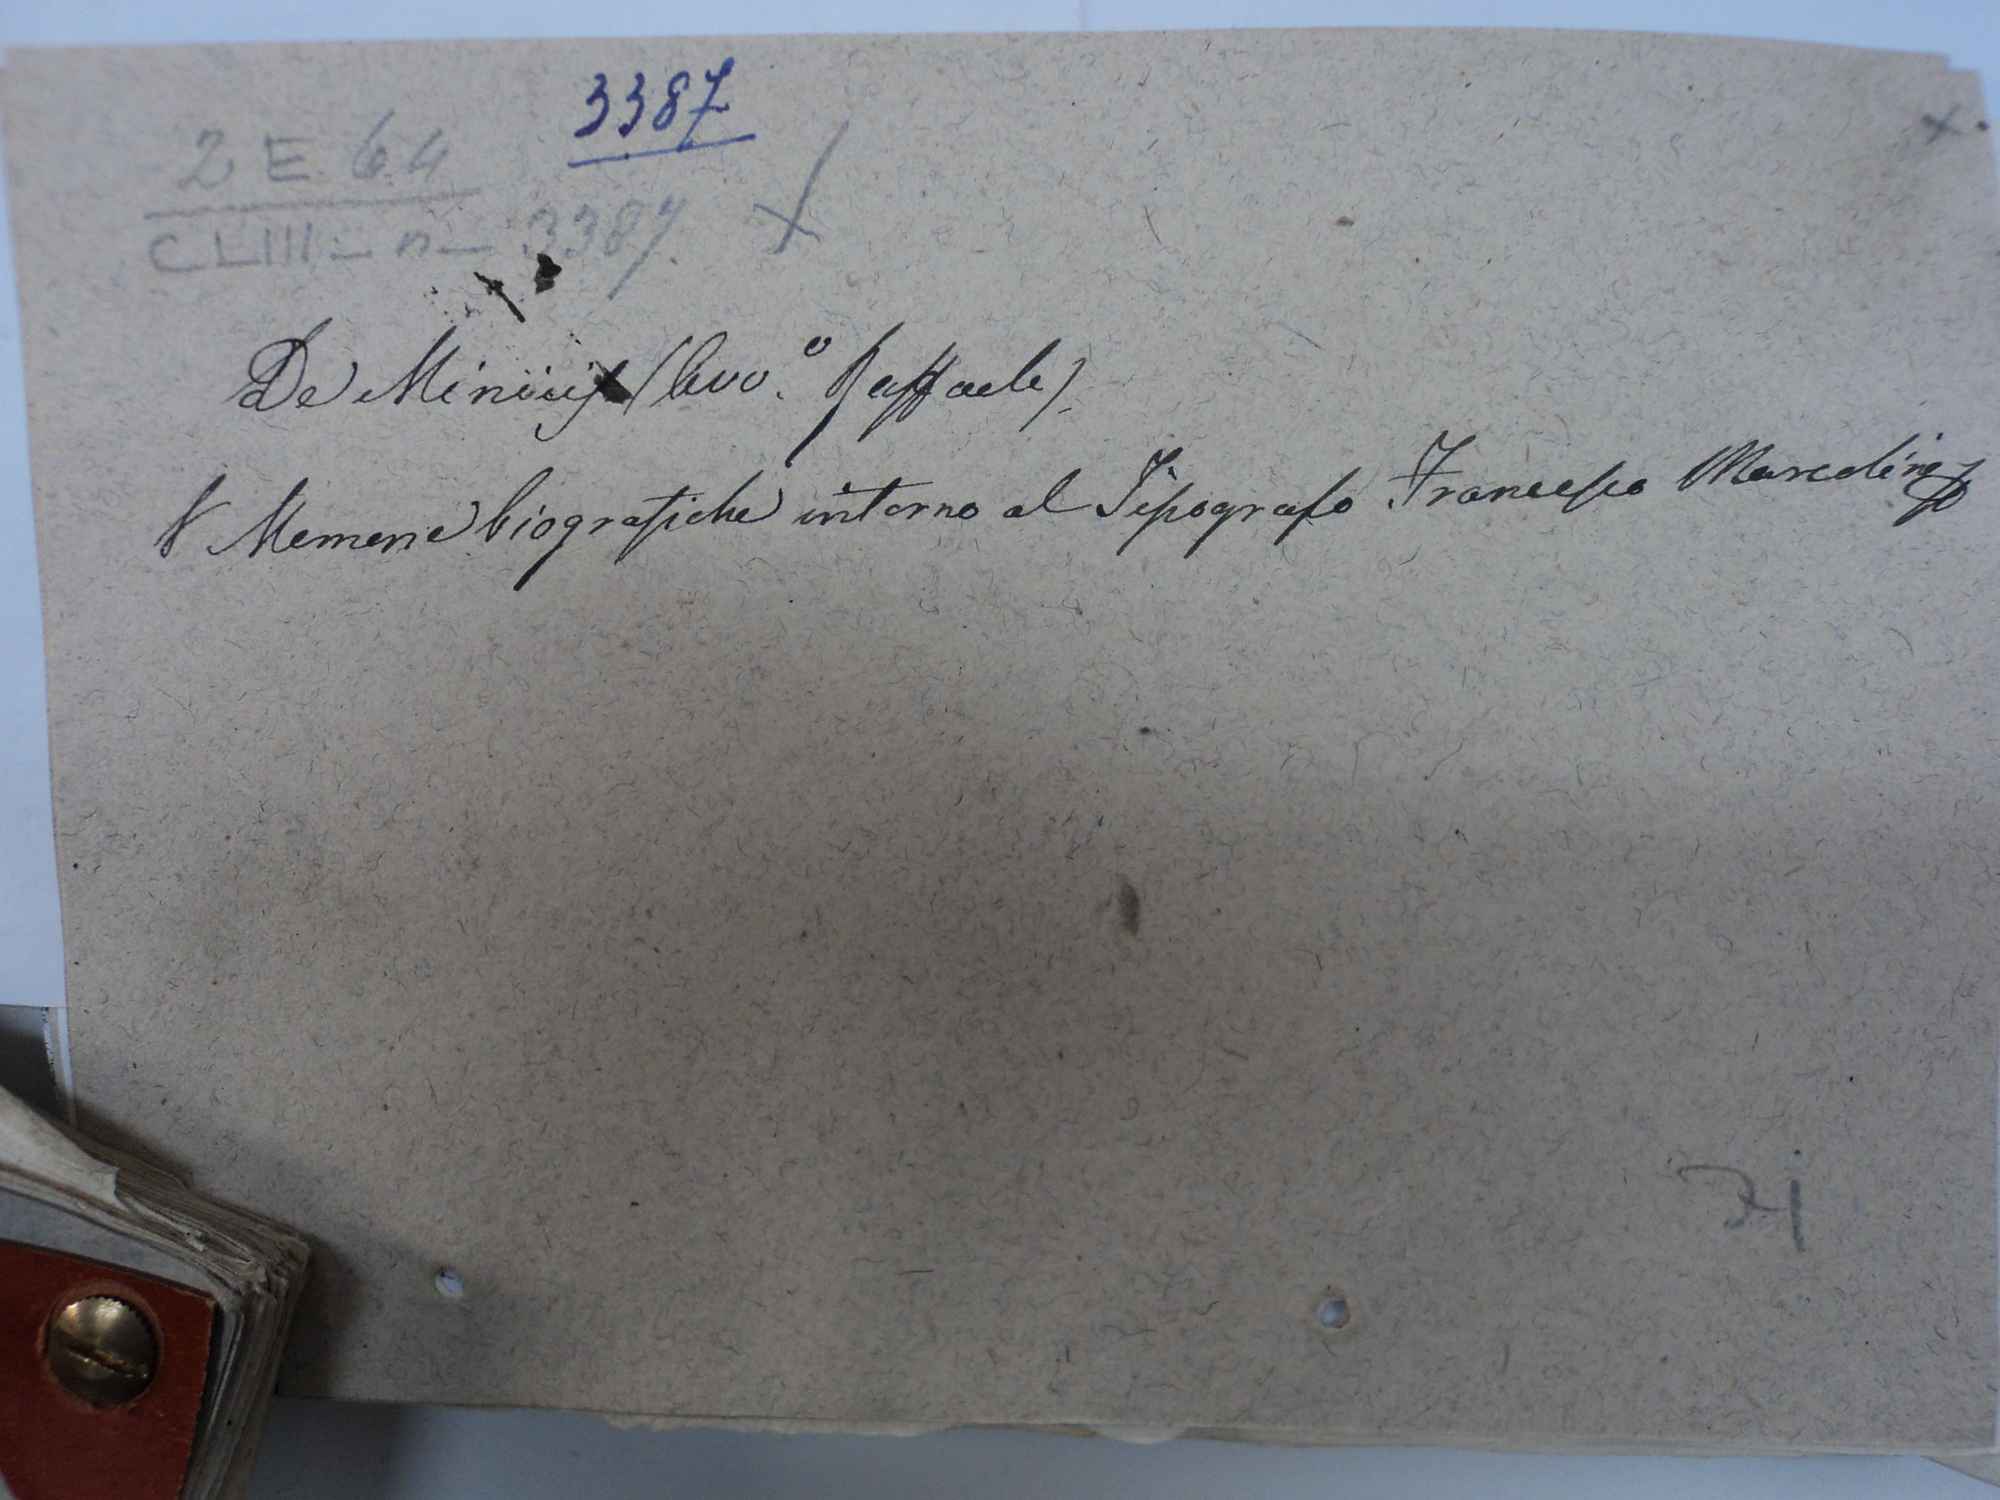 3387
2 E. 64
CLIII - n - 3387.
De Minicis (Avv.º Raffaele)
Memorie biografiche intorno al Tipografo Francesco Marcolini